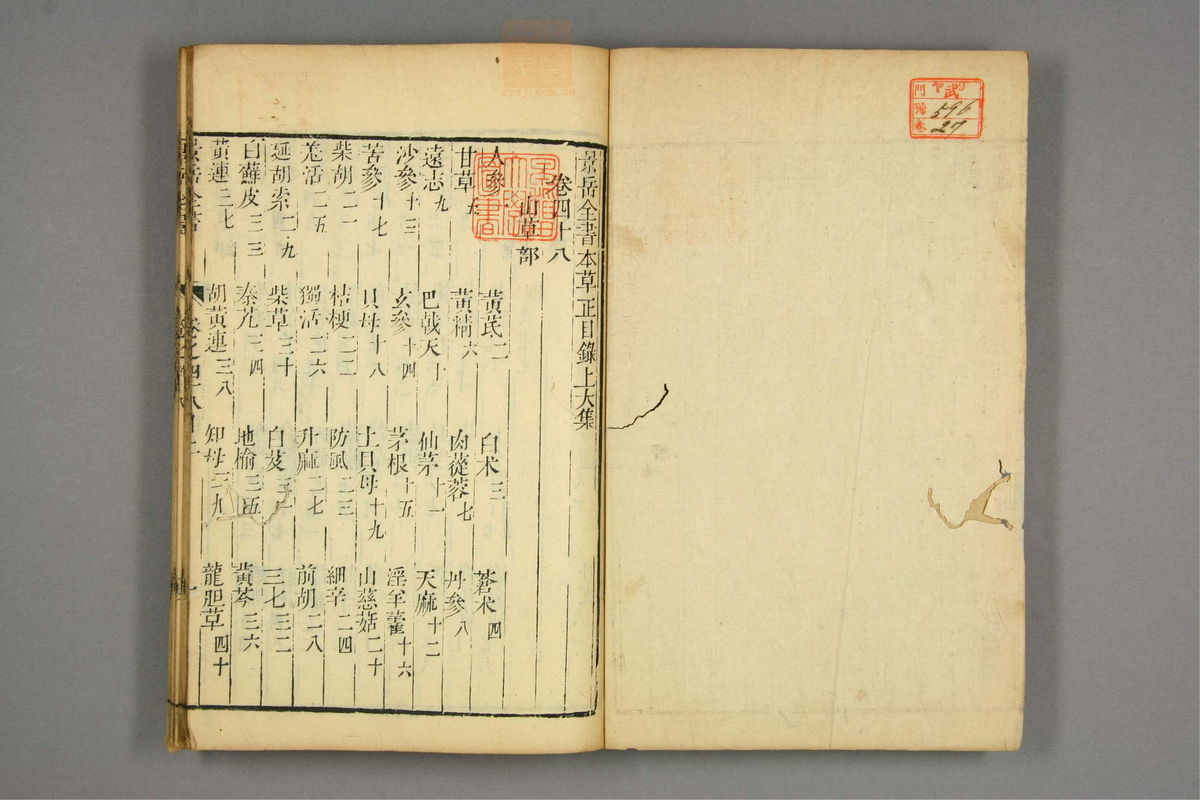 景岳全書本草正目錄上大集
卷四十八
山草部
人參一 黃芪二 白朮三 蒼朮四
甘草五 黃精六 肉蓯蓉七 丹參八
遠志九 巴戟天十 仙茅十一 天麻十二
沙參十三 玄參十四 茅根十五 淫羊藿十六
苦參十七 貝母十八 土貝母十九 山慈菇二十
柴胡二一 桔梗二二 防風二三 細辛二四
羗活二五 獨活二六 升麻二七 前胡二八
延胡索二九 柴草三十 白芨三一 三七三二
白蘚皮三三 秦艽三四 地榆三五 黃芩三六
黃連三七 胡黃連三八 知母三九 龍胆草四十
景岳全書
卷之四十八目
一
武
門
號 596
卷 27